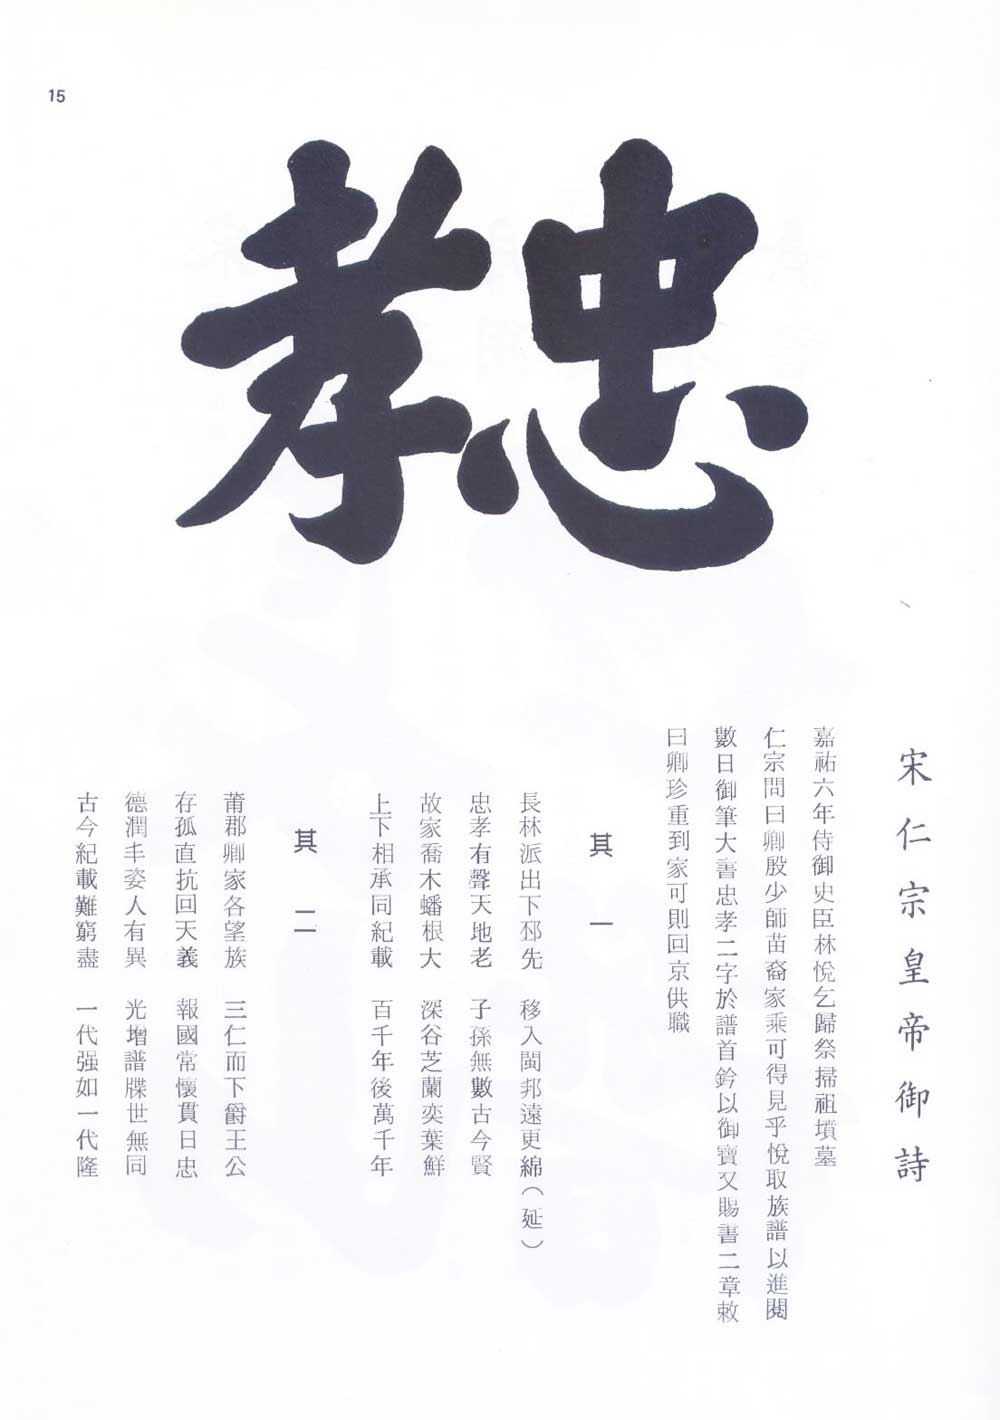 15
忠孝
宋仁宗皇帝御詩
嘉祐六年侍御史臣林悅乞歸祭掃祖墳墓
仁宗問曰卿殷少師苗裔家乘可得見乎悅取族譜以進閱
數日御筆大書忠孝二字於譜首鈐以御寶又賜書二章敕
曰卿珍重到家可則回京供職
其一
長林派出下邳先 移入閩邦遠更綿（延）
忠孝有聲天地老 子孫無數古今賢
故家喬木蟠根大 深谷芝蘭奕葉鮮
上下相承同紀載 百千年後萬千年
其二
莆郡卿家各望族 三仁而下爵王公
存孤直抗回天義 報國常懷貫日忠
德潤丰姿人有異 光增譜牒世無同
古今紀載難窮盡 一代强如一代隆